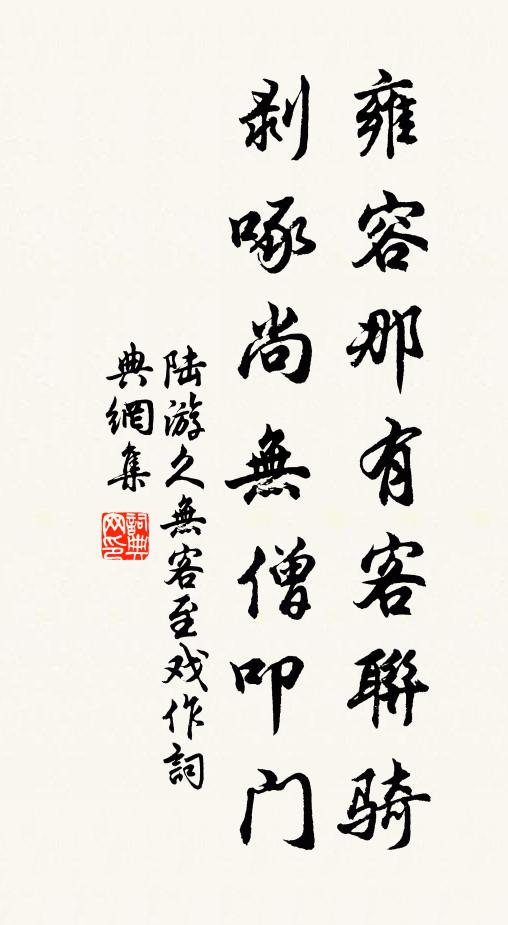 雍容那有客聯骑
剥啄尚無僧叩门
陆游久無客至戏作詞
典網集
詞典网印